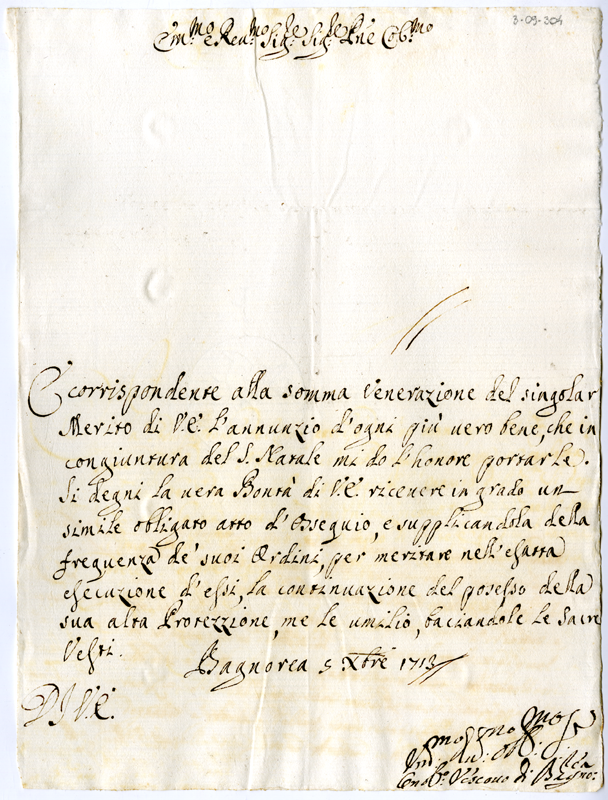 3-09-304
Em.mo e Rev.mo Sig.re Sig.re P.ne Col.mo
È corrispondente alla somma Venerazione del singolar
Merito di V.E. l'annunzio d'ogni più vero bene, che in
congiuntura del S. Natale mi do l'honore portarle.
Si degni la vera Bontà di V.E. ricevere in grado un
simile obligato atto d'Ossequio, e supplicandola della
frequenza de' suoi Ordini, per meritare nell'esatta
esecuzione d'essi, la continuazione del possesso della
sua alta Protezzione, me le umilio, baciandole le Sacre
Vesti.
Bagnorea 5 Xbre 1713
D. V.E.
Um.mo
Vescovo di Bagno.rea